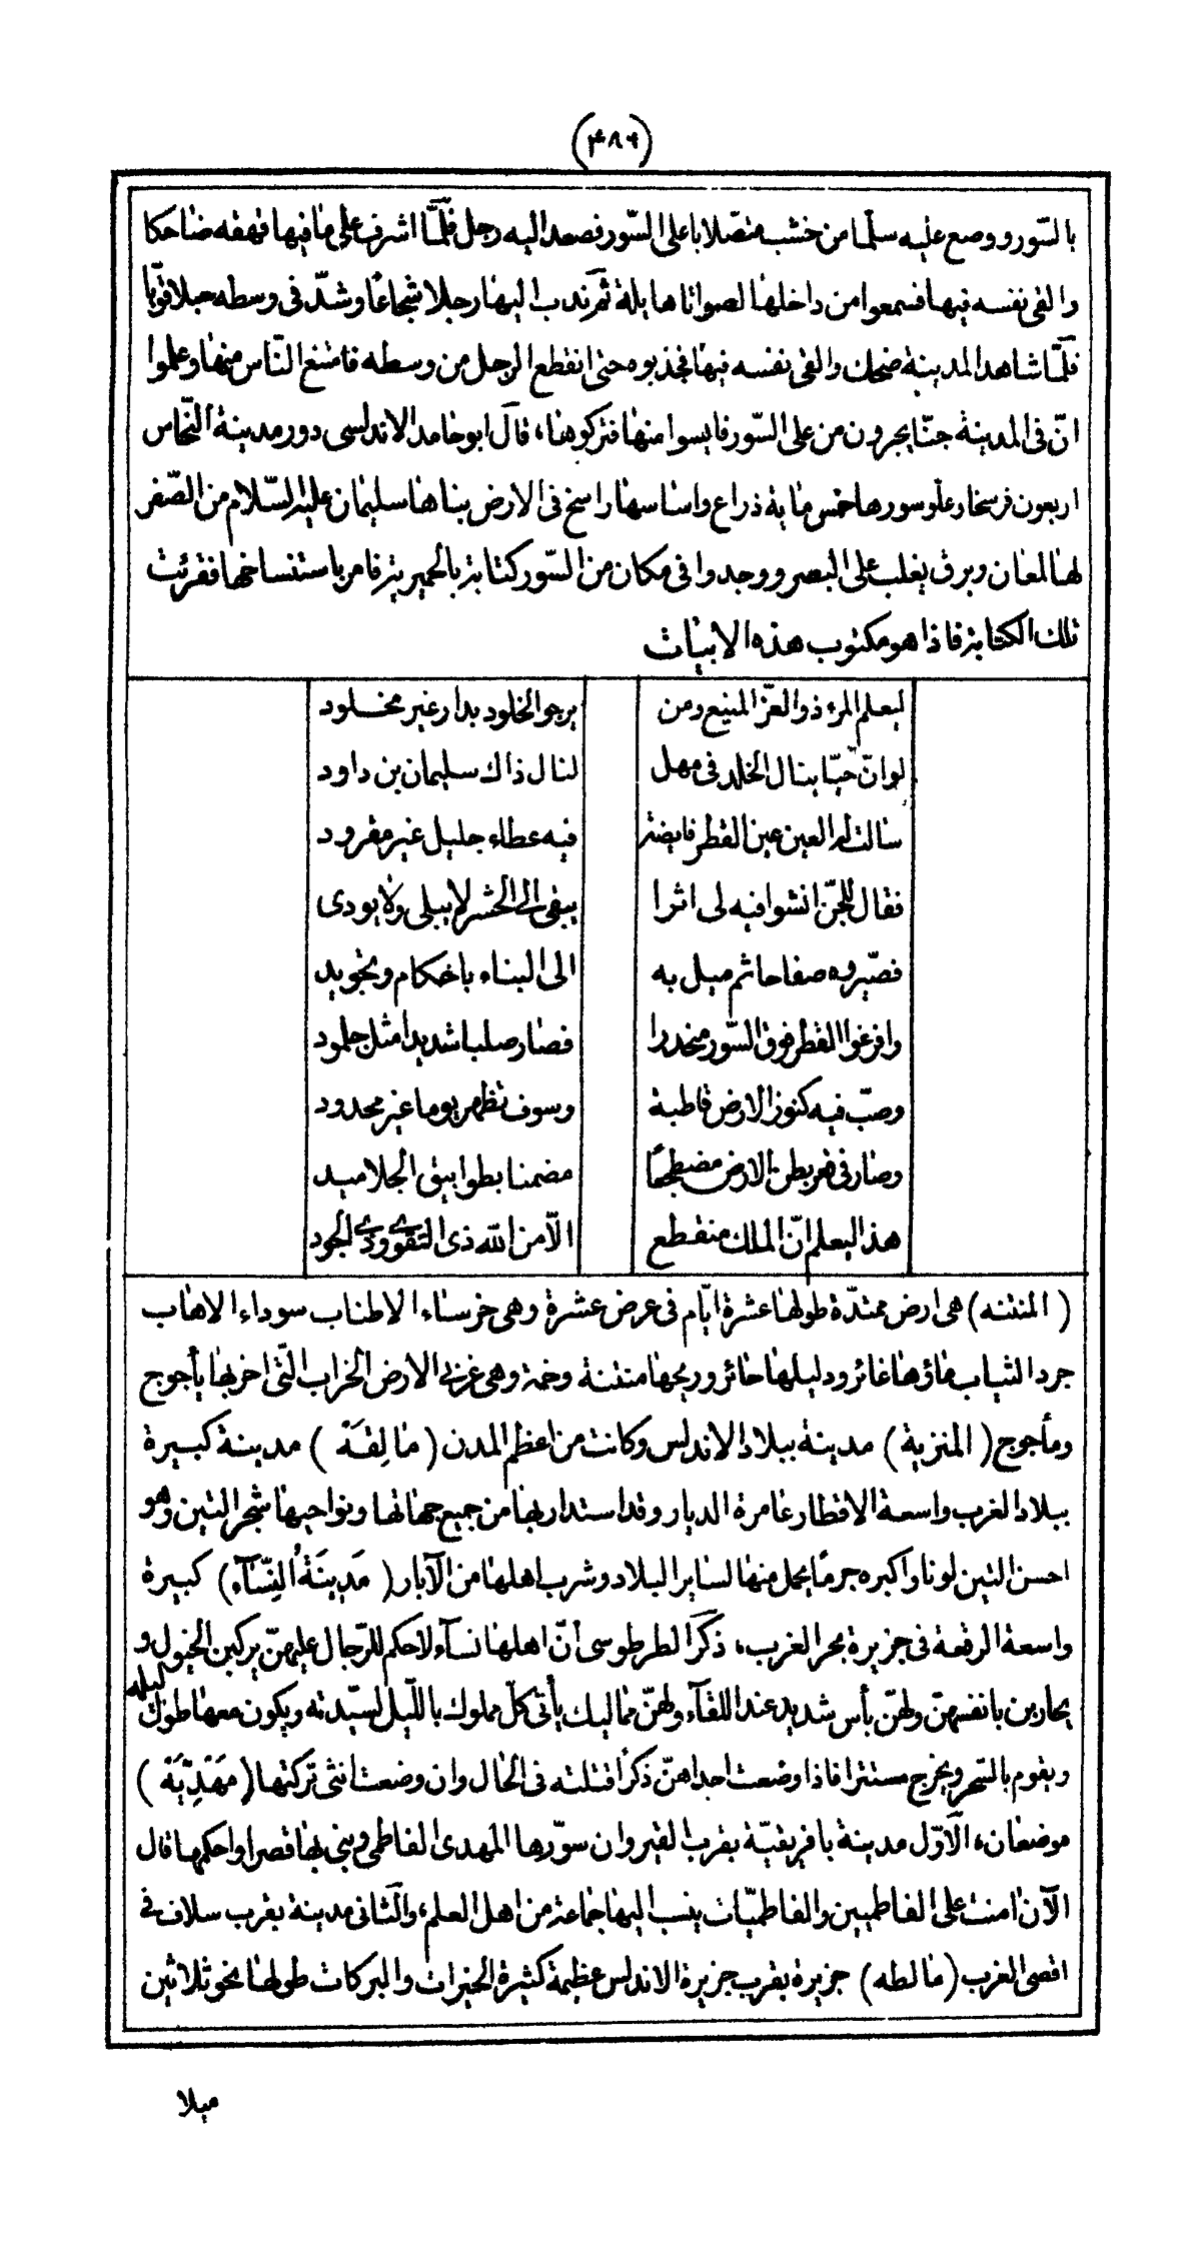 (٤٨٦)
بالسّور ووضع عليه سلّما من خشب متصّلا باعلى السّور فصعد اليه رجل فلمّا اشرف على ما فيها قهقه ضاحكا
والقى نفسه فيها فسمعوا من داخلها اصواتا هايلة ثم ندب اليها رجلا شجاعًا وشدّ فى وسطه حبلا قويّا
فلمّا شاهد المدينة ضحك والقى نفسه فيها فجذبوه حتى انقطع الرجل من وسطه فامتنع النّاس منها وعلموا
انّ فى المدينة جنّا يجرون من على السّور فايسوا منها فتركوها، قال ابو حامد الاندلسى دور مدينة النّحاس
اربعون فرسخا وعلو سورها خمس ماية ذراع واساسها راسخ فى الارض بناها سليمان عليه السّلام من الصّفر
لها لمعان وبرق يغلب على البصر ووجدوا فى مكان من السّور كتابة بالحميرية فامر باستنساخها فقرئت
تلك الكتابة فاذا هو مكتوب هذه الابيات
ليعلم المرء ذو العزّ المنيع ومن يرجوا الخلود بدار غير مخلود
لو انّ حيّا ينال الخلد فى مهل لنال ذاك سليمان بن داود
سالت له العين عين القطر فايضة فيه عطاء جليل غير مقرود
فقال للجنّ انشوا فيه لى اثرا يبقى الى الحشر لا يبلى ولا يودى
فصّيروه صفاحا ثم ميل به الى البناء باحكام وتجويد
وافرغوا القطر فوق السّور منحدرا فصار صلبا شديدا مثل جلمود
وصبّ فيه كنوز الارض قاطبة وسوف تظهر يوما غير محدود
وصار فى قعر بطن الارض مضطجعًا مضمنا بطوابيق الجلاميد
هذا ليعلم انّ الملك منقطع الّا من الله ذى التقوى وذى الجود
(المنتنه) هى ارض ممتدّة طولها عشرة ايّام فى عرض عشرة وهى خرساء الاطناب سوداء الاهاب
جرد الثياب ماؤها غائر ودليلها حائر وريحها منتنة وخمة وهى غربى الارض الخراب الّتى اخربها يأجوج
ومأجوج (المنزية) مدينة ببلاد الاندلس وكانت من اعظم المدن (مالِقَة) مدينة كبيرة
ببلاد الغرب واسعة الاقطار عامرة الديار وقد استدار بها من جميع جهاتها ونواحيها شجر التين وهو
احسن التين لونا واكبره جرمًا يحمل منها لساير البلاد وشرب اهلها من الآبار (مَدينَةُ النِّسَآء) كبيرة
واسعة الرقعة فى جزيرة بحر الغرب، ذكر الطرطوسى انّ اهلها نسآء لا حكم للرّجال عليهنّ يركبن الخيول و
يحاربن بانفسهنّ ولهنّ بأس شديد عند اللقآء ولهنّ مماليك يأتى كلّ مملوك باللّيل لسيّدته ويكون معها طول ليله
ويقوم بالسّحر ويخرج مستترا فاذا وضعت احداهنّ ذكرًا قتلته فى الحال وان وضعت انثى تركتها (مَهْدِيَّة)
موضعان، الاوّل مدينة بافريقيّة بقرب القيروان سوّرها المهدى الفاطمى وبنى بها قصرا واحكمها قال
الآن امنت على الفاطميين والفاطميّات ينسب اليها جماعة من اهل العلم، والثانى مدينة بقرب سلا فى
اقصى الغرب (مالطه) جزيرة بقرب جزيرة الاندلس عظيمة كثيرة الخيرات والبركات طولها نحو ثلاثين
ميلا